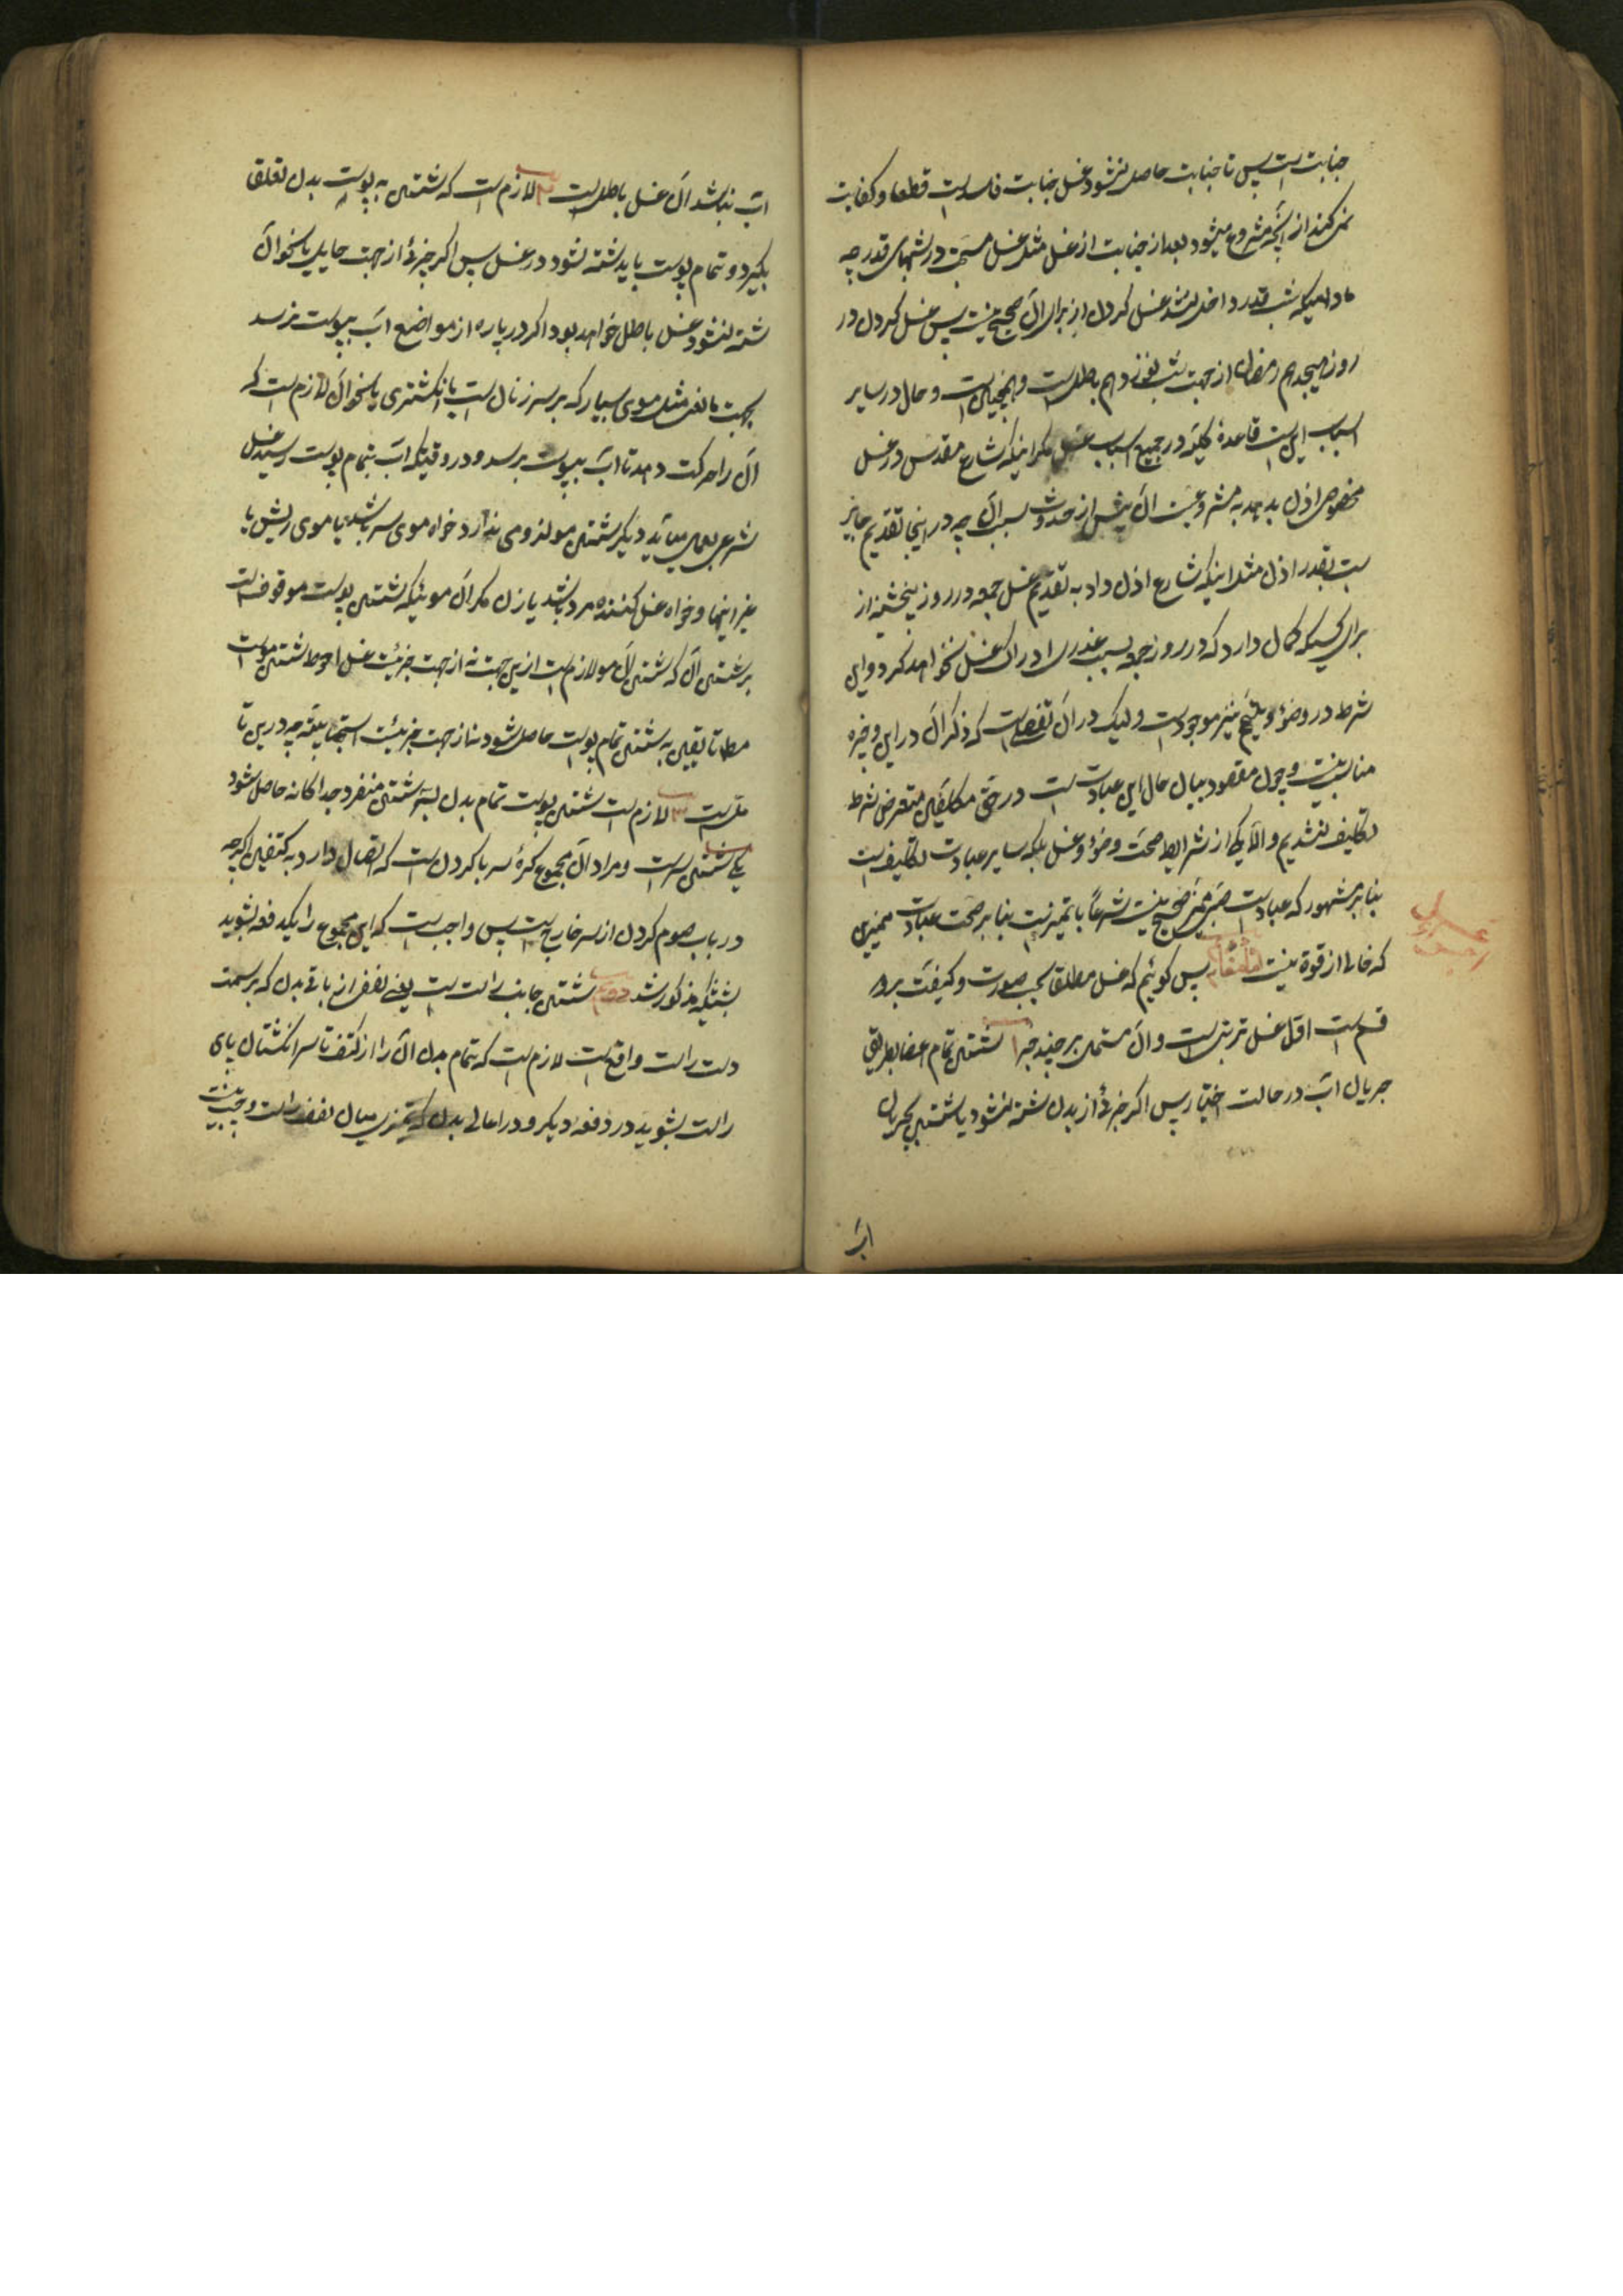 جنابت است پس تا جنابت حاصل نشود غسل جنابت فاسد است قطعا و کفایت
نمی کند از آنچه مشروع میشود بعد از جنابت از غسل مثل غسل مستحب در شبهای قدر چه
مادامیکه شب قدر داخل نشد غسل کردن از برای آن صحیح نیست پس غسل کردن در
روز هیجدهم رمضان از جهت شب نوزدهم باطل است و همچنین است و حال در سایر
اسباب این است قاعدهٔ کلیه در جمیع اسباب غسل مکر اینکه شارع مقدس در غسل
مخصوص اذن بدهد به مشروعیت آن پیش از حدوث سبب آن چه در اینجا تقدیم جایز
است بقدر اذن مثل اینکه شارع اذن داد به تقدیم غسل جمعه در روز پنجشنبه از
برای کسیکه کمان دارد که در روز جمعه بسبب عذری ادراک غسل نخواهد کرد و این
شرط در وضوء و تیمم نیز موجود است ولیک در آن تفصیلی است که ذکر آن در این وجیزه
مناسب نیست و چون مقصود بیان حال این عبادت است در حق مکلفین متعرض شرط
تکلیف نشدیم والا یکی از شرایط صحت وضوء و غسل بلکه سایر عبادت تکلیف است
بنابر مشهور که عبادت صبی ممیز صحیح نیست شرعاً یا تمیز نیست بنابر صحت عبادت ممیزی
که خالی از قوة نیست پس کوئیم که غسل مطلقا بحسب صورت و کیفیت بر دو
قسم است اول غسل ترتیبی است و آن مشتمل بر چند چیز ۱ شستن تمام اعضا بطریق
جریان آب در حالت اختیار پس اکر جزئی از بدن شسته نشود یا شستن بجریان
آب
آب نباشد آن غسل باطل است ۲ لازم است که شستن به پوست بدن تعلق
بکیرد و تمام پوست باید شسته شود در غسل پس اکر جزئی از جهت حایلی یا نحو آن
شسته نشود غسل باطل خواهد بود اکر در پاره از مواضع آب بپوست نرسد
بجهت مانعی مثل موی بسیار که بر سر زنان است یا انکشتری یا نحو آن لازم است که
آن را حرکت دهد تا آب بپوست برسد و در وقتیکه آب بتمام پوست رسید غسل
شرعی بعمل میآید دیکر شستن مو لزومی ندارد خواه موی سر باشد یا موی ریش یا
غیر اینها و خواه غسل کننده مرد باشد یا زن مکر آن موئیکه شستن پوست موقوفست
بر شستن آن که شستن آن مو لازم است از این جهت نه از جهت جزئیت غسل احوط شستن موست
مطلقا تا یقین به شستن تمام پوست حاصل شود نه از جهت جزئیت استحبابیّه چه در این تا
ملّ است ۳ لازم است شستن پوست تمام بدن بسه شستن منفرد جداکانه حاصل شود
یکی شستن سر است و مراد آن مجموع کرهٔ سر با کردن است که اتصال دارد به کتفین اکرچه
در باب صوم کردن از سر خارج است پس واجب است که این مجموع را یکدفعه بشوید
بشیئیکه مذکور شد دویم شستن جانب راست است یعنی نصف از باقی بدن که بر سمت
دست راست واقع است لازم است که تمام بدن آن را از کتف تا سر انکشتان پای
راست بشوید در دفعه دیکر و در اعالی بدن که تمیزی میان نصف راست و چپ نیست